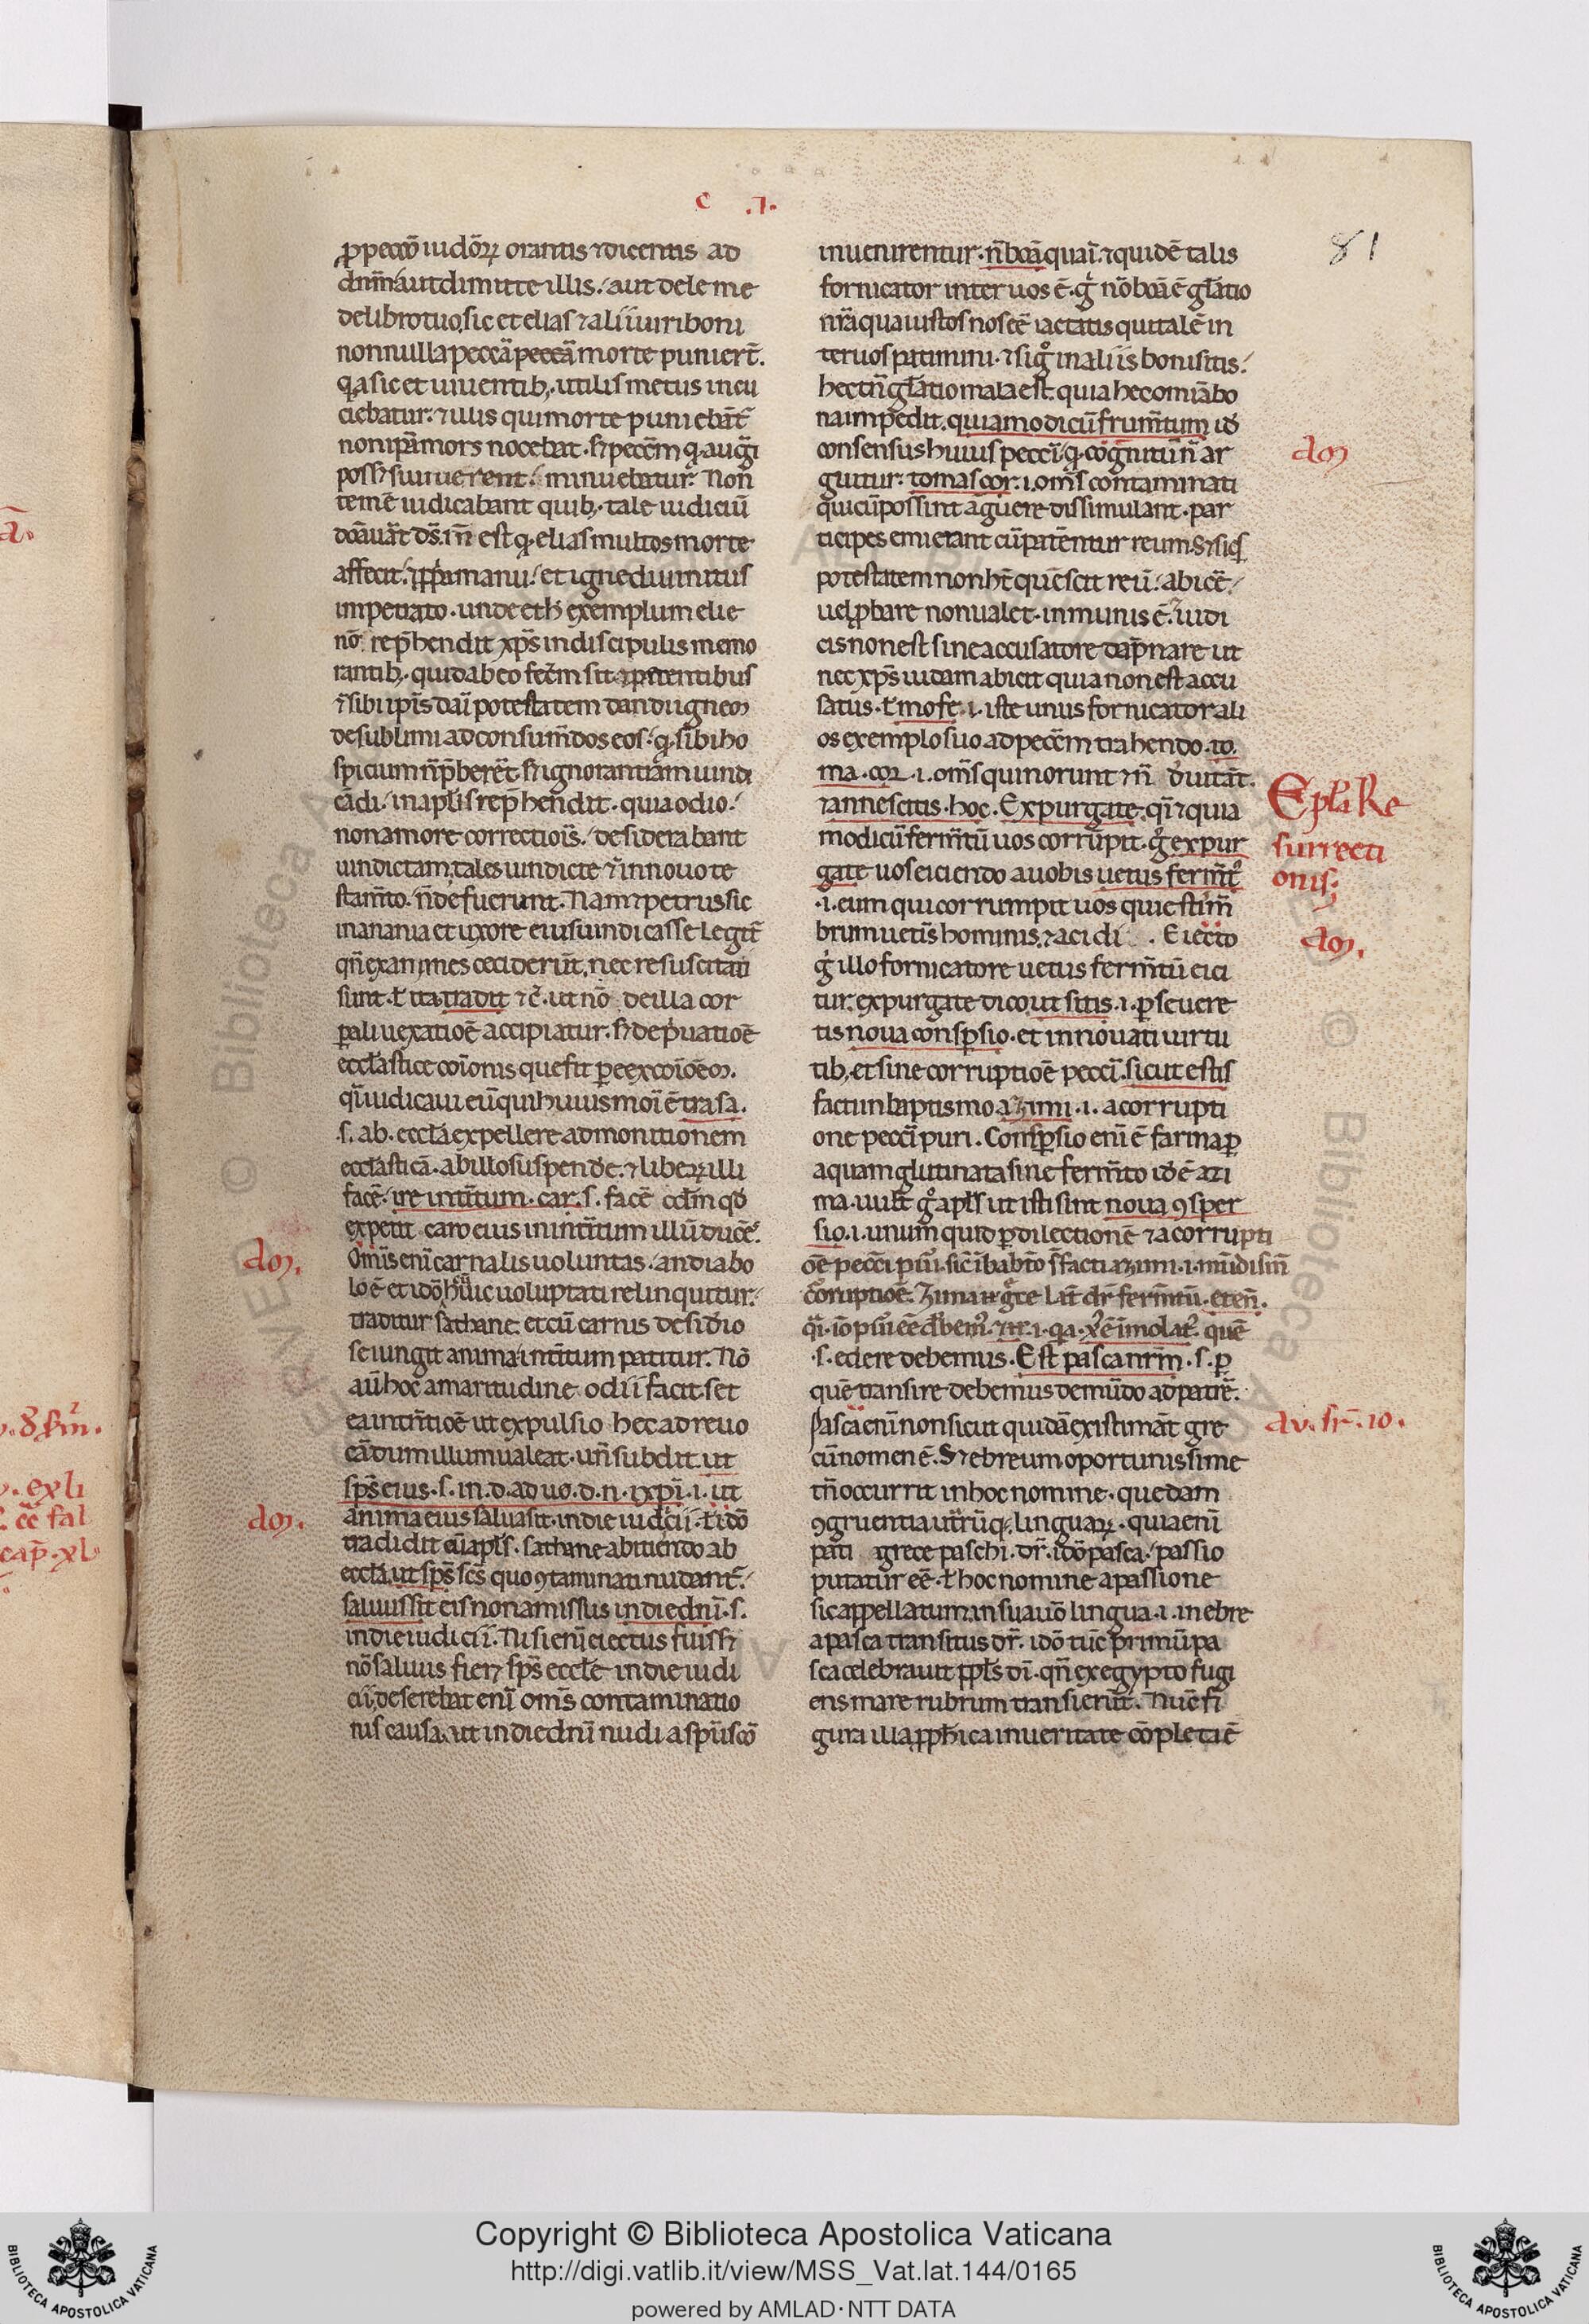 c .7.
81
ꝓ pecc̄o iudōꝝ orantis ⁊ dicentis ad
dn̄m aut dimitte illis / aut dele me
de libro tuo. sic et elias ⁊ alii uiri boni
non nulla peccā peccā morte punierт̄.
qͣ a sic et uiuentibꝫ utilis metus incu
ciebatur. ⁊ illis qui morte puniebāt̄
non ip̄a mors nocebat. sꝫ pecc̄m qꝫ augi
possꝫ si uiuerent / minuebatur. Non
temē iudicabant quibꝫ tale iudiciū
dōauāt ds̄. in̄ est qꝫ elias multos morte
affecit / ꝓpͥa manu / et igne diuinitus
impetrato. unde et hͦ exemplum elie
nō rep̄hendit xp̄s in discipulis memo
rantibꝫ quid ab eo fc̄m sit
⁊ sibi ip̄is dāi potestatem dandi ignem
de sublimi ad consum̄dos eos. qꝫ sibi ho
spicium n̄ p̄beret̄. sꝫ ignorantiam uindi
cādi / in apl̄is rep̄hendit. quia odio /
non amore correctiois̄ / desiderabant
uindictam. tales uindicte ⁊ in nouo te
stam̄to. n̄ defuerunt. Nam ⁊ petrus sic
in anania et uxore eius uindicasse legit̄
qn̄ exanimes ceciderūt. nec resuscitati
sunt. ł ita tradit ⁊c̄. ut nō de illa cor
ꝑali uexatioē accipiatur. sꝫ de p̄uatioē
eccl̄astice cōionis que fit ꝑ excōiōem.
qͥ iudicaui eū qui huiusmoi ē tra sa.
.s. ab eccl̄a expellere admonitionem
eccl̄asticā. ab illo suspende. ⁊ liberꝝ illi
facē / ire in int̄itum. car. s. facē cd̄m qd̄
expetit caro eius in int̄itum illū ducē.
Omīs enī carnalis uoluntas / an diabo
lo ē et idō huic uoluptati relinquitur /
traditur sathane. et cū carnis desidio
se iungit anima int̄itum patitur. Nō
aū hoc amaritudine odii facit. set
ea intn̄tioē ut expulsio hec ad reuo
cādum illum ualeat. un̄ subdit. ut
sp̄s eius. s. in. d. ad uō. d. n. ixpi. i. ut
anima eius salua sit. in die iudicii. ł idō
tradidit eū apl̄s. sathane abiciendo ab
eccl̄a. ut sp̄s sc̄s quo ꝯtaminati nudant̄ /
saluus sit eis non amissus in die dn̄i. s.
in die iudicii. Nisi enī eiectus fuissꝫ
nō saluus fierꝫ sp̄s eccle in die iudi
cii. deserebat enī om̄s contaminatio
nis causa. ut in die dn̄i nudi a spū scō
inuenirentur. n̄ boā quaī. ⁊ quidē talis
fornicator inter uos ē. gͦ nō boā ē gl̄atio
nr̄a qua iustos nos eē iactatis qui talē in
ter uos patimini. ⁊ si gͦ in aliis boni sitis /
hec tn̄ gl̄atio mala est. quia hec omīa bo
na impedit. quia modicū frum̄tum id
consensus huius pecci / qꝫ cognitū n̄ ar
guitur. to mas cor. i. om̄s contaminati
qui cū possint arguere dissimulant. par
ticipes enī erant cū patēntur reum. Sꝫ siqͥs
potestatem non ht̄ quē scit reū / abicē /
uel ꝓbare non ualet. inmunis ē. ⁊ iudi
cis non est sine accusatore dāpnare ut
nec xp̄s iudam abicit quia non est accu
satus. ł mo fe. i. iste unus fornicator ali
os exemplo suo ad pecc̄m trahendo. to.
ma. cor. i. om̄s qui norunt ⁊ n̄ deuitāt.
⁊ an nescitis. hoc. Expurgate. qn̄ ⁊ quia
modicū ferm̄tū uos corrūpit. gͦ expur
gate uos eiciendo a uobis uetus ferm̄t̄
.i. eum qui corrumpit uos qui est im̄
brum ueteris hominis. ⁊ acidi . Eiecto
gͦ illo fornicatore uetus ferm̄tū eici
tur. expurgate dico ut sitis. i. ꝑseuere
tis noua consꝑsio. et innouati uirtu
tibꝫ et sine corruptioē pecci. sicut estis
facti in baptismo azimi. i. a corrupti
one pecci puri. Consꝑsio enī ē farina ꝑ
aquam glutinata sine ferm̄to id ē azi
ma. uult gͦ apl̄s ut isti sint noua ꝯsper
sio. i. unum quid ꝑ dilectionē ⁊ a corrupti
oē pecci
ē corruptioē. Zima
.s. edere debemus. Est pasca nr̄m. s. ꝑ
quē transire debemus de mūdo ad patrē.
Pasca enī non sicut quidā existimāt gre
cū nomen ē. Sꝫ ebreum oportunissime
tn̄ occurrit in hoc nomine. quedam
ꝯgruentia utr̄ūqꝫ linguaꝝ. quia enī
pati grece paschi. dr̄. idō pasca / passio
putatur eē. ł hoc nomine a passione
sic appellatum. in sua uō lingua. i. in ebre
a pasca transitus dr̄. idō tūc primū pa
sca celebrauit ppl̄s dī. qn̄ ex egypto fugi
ens mare rubrum transierūt. Nūc fi
gura illa ꝓph̄ica in ueritate cōpleta ē
dom.
dom.
dom
Epl̄a Re
surrecti
onis.
dom.
au. fr̄. 10.
Copyright © Biblioteca Apostolica Vaticana
http://digi.vatlib.it/view/MSS_Vat.lat.144/0165
powered by AMLAD·NTT DATA
BIBLIOTECA APOSTOLICA VATICANA
BIBLIOTECA APOSTOLICA VATICANA